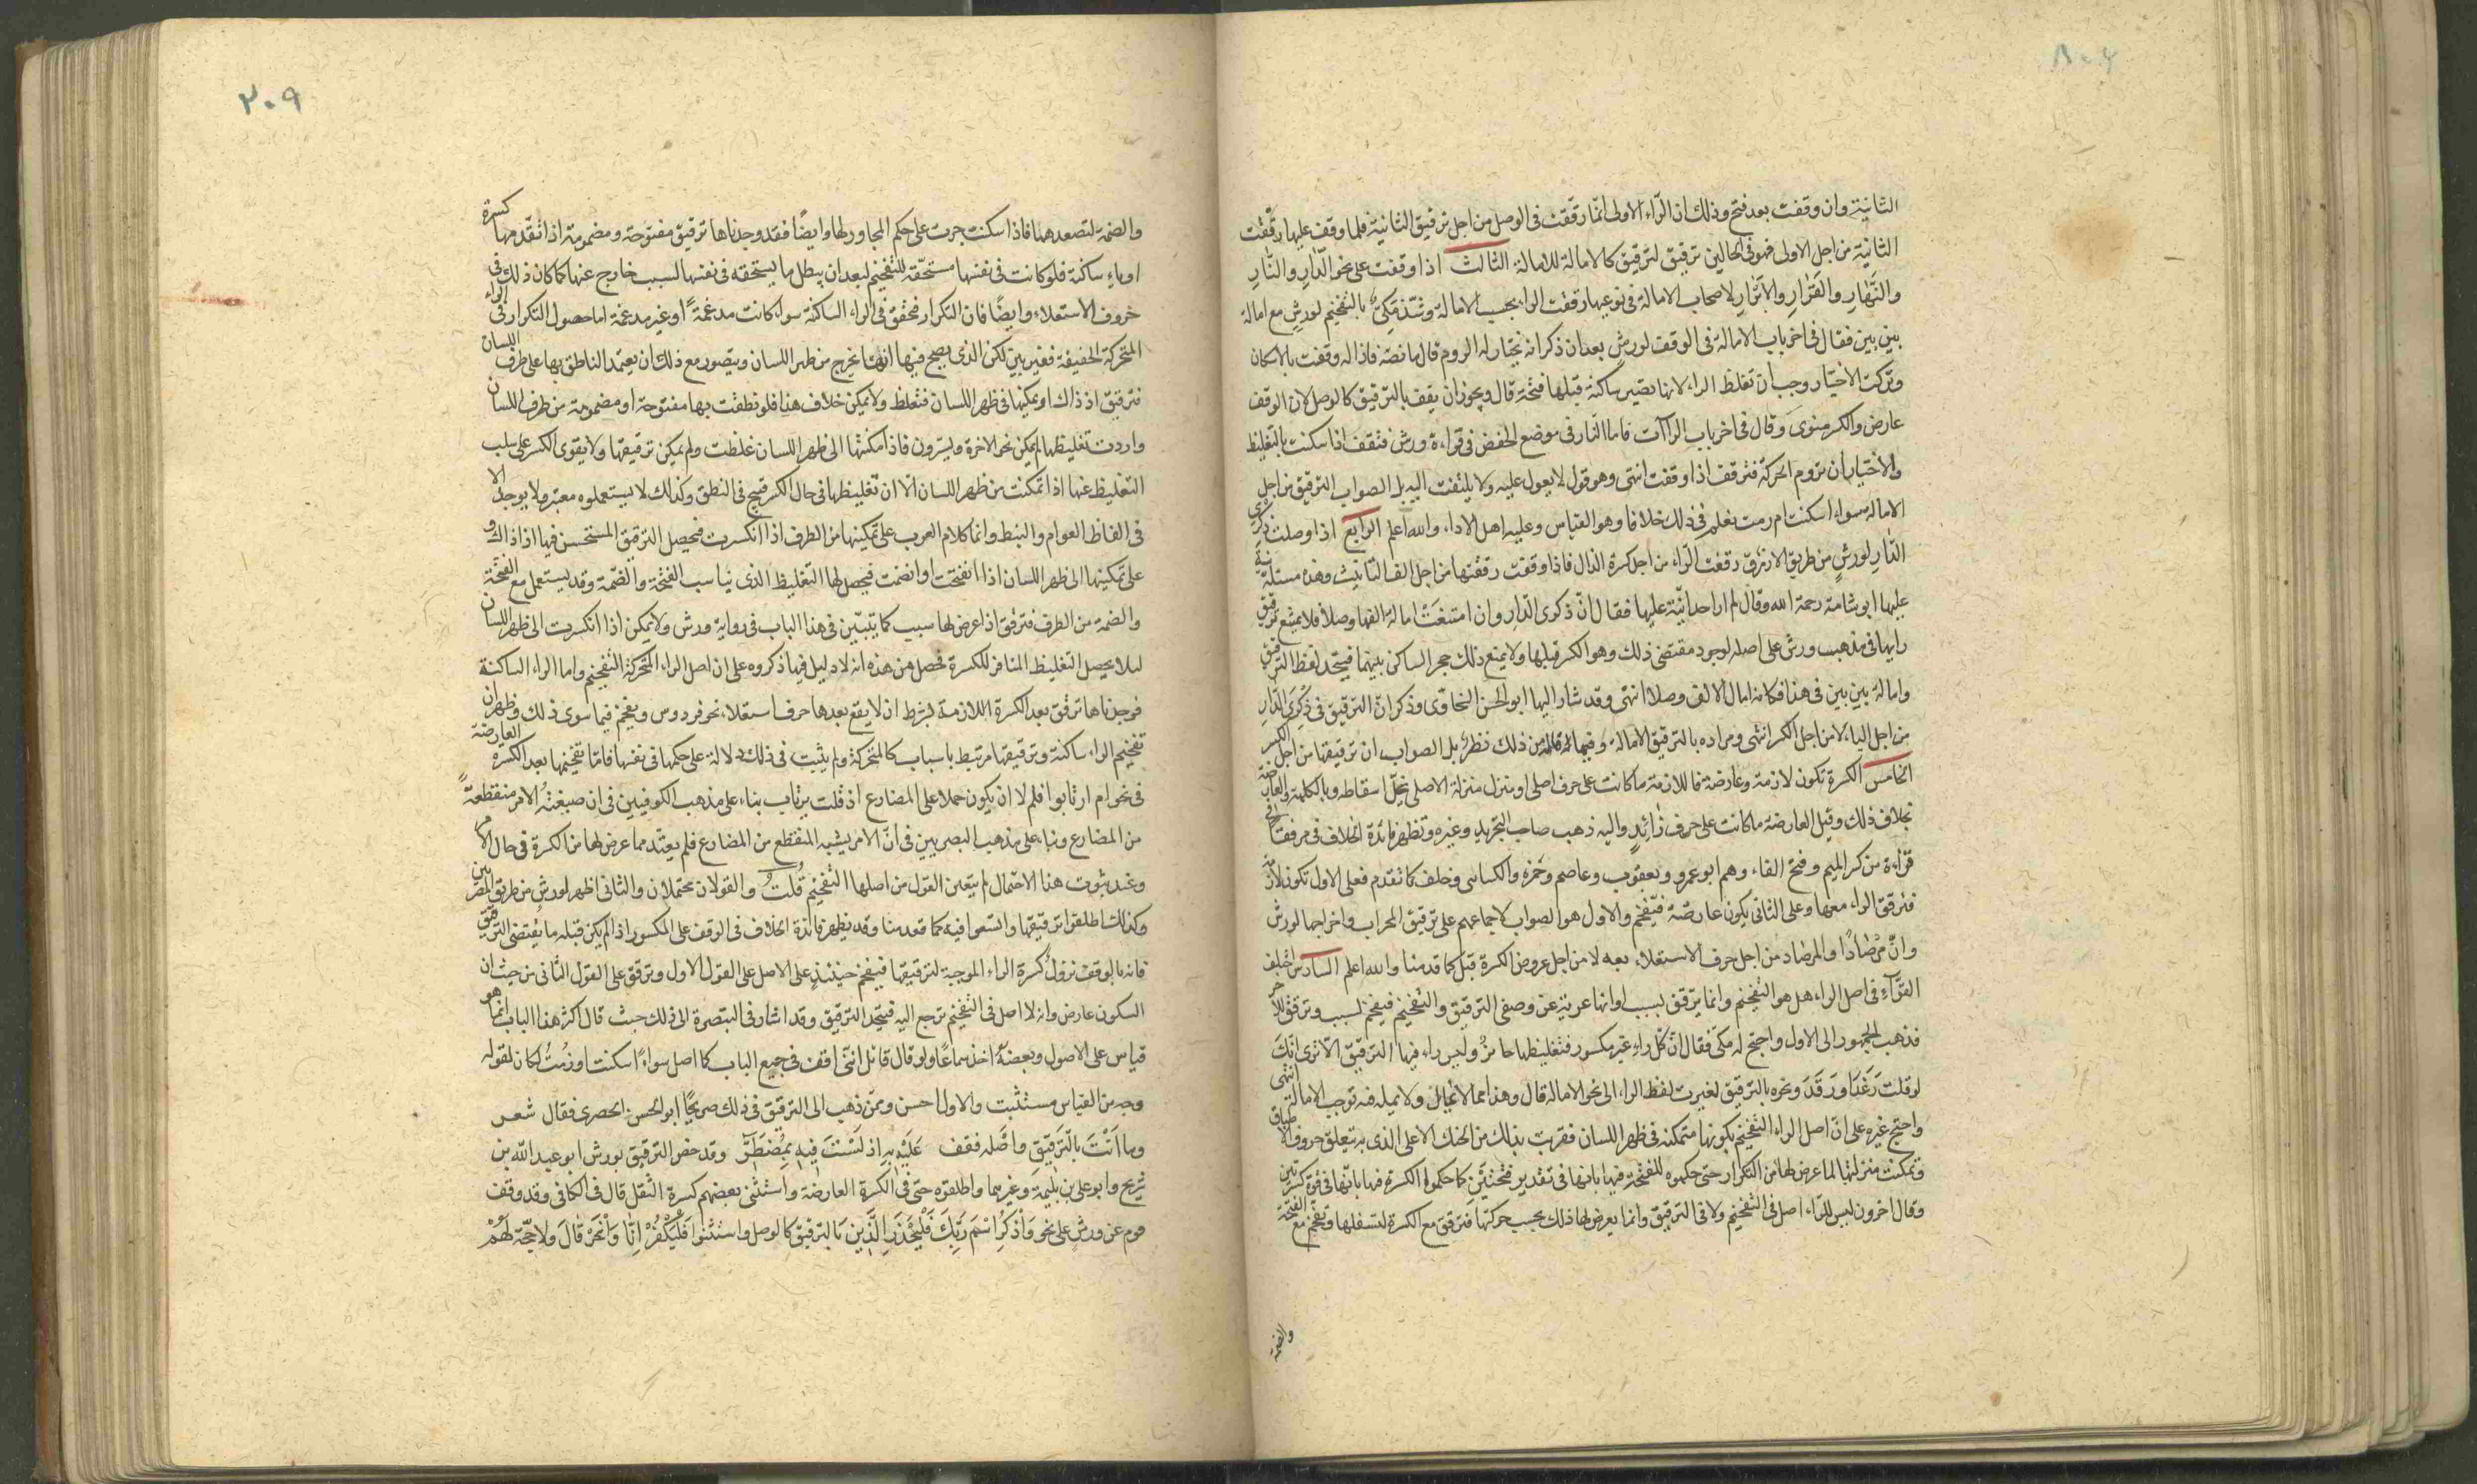 ٨٠٢
الثانية وان وقفت بعد فتح وذلك ان الرّاء الاولى انّما رققت فى الوصل من اجل ترقيق الثانية فلما وقف عليها رقّقت
الثانية من اجل الاولى فهو فى الحالين ترقيق لترقيق كالامالة للامالة الثالث اذا وقفت على نحو الدّارِ والنّارِ
والنّهارِ والقَرارِ والاَبْرارِ لاصحاب الامالة فى نوعيها رققت الراء بحسب الامالة وشذّ مَكىّ بالتفخيم لورشٍ مع امالة
بين بين فقال فى اخر باب الامالة فى الوقف لورش بعد ان ذكر انه يختار له الروم قال ما نصّه فاذا له وقفت بالاسكان
وتركت الاختيار وجب ان تغلظ الراء لانها تصير ساكنة قبلها فتحة قال ويجوز ان يقف بالترقيق كالوصل لان الوقف
عارض والكسر منوىّ وقال فى اخر باب الراآت فاما النّار فى موضع الخفض فى قراءة ورش فتقف اذا سكنت بالتغليظ
والاختيار ان تروم الحركة فترقف اذا وقفت انتهى وهو قول لا يعول عليه ولا يلتفت اليه بل الصواب الترقيق من اجل
الامالة سواء اسكنت ام رمت نعلم فى ذلك خلافا وهو القياس وعليه اهل الاداء والله اعلم الرابع اذا وصلت ذكرى
الدّارِ لورشٍ من طريق الازرق رققت الرّاء من اجل كسرة الذال فاذا وقفت رققتها من اجل الف التأنيث وهذه مسئلة نبّه
عليها ابو شامة رحمة الله وقال لم ار احدا نبّه عليها فقال انّ ذكرى الدّارِ وان امتنعَتْ امالة الفها وصلاً فلا يمتنع ترقيق
رايها فى مذهب ورش على اصله لوجود مقتضى ذلك وهو الكسر قبلها ولا يمنع ذلك حجر الساكن بينهما فيتحد لفظ الترقيق
وامالة بين بين فى هذا فكانه امال الالف وصلا انتهى وقد شار اليها ابو الحسن السخاوى وذكر انّ الترقيق فى ذِكْرَى الدّارِ
من اجل الياء لا من اجل الكسر انتهى ومراده بالترقيق الامالة وفيما قاله من ذلك نظر بل الصواب ان ترقيقها من اجل الكسر
الخامس الكسرة تكون لازمة وعارضة فاللازمة ما كانت على حرف اصلى او منزل منزلة الاصلى يخلّ اسقاطه وبالكلمة والعارضة
بخلاف ذلك وقيل العارضة ما كانت على حرف زائدٍ واليه ذهب صاحب التجريد وغيره وتظهر فائدة الخلاف فى مرفقا فى
قراءة من كسر الميم وفتح الفاء وهم ابو عمرو ويعقوب وعاصم وحمزه والكسائى وخلف كما تقدم فعلى الاول تكون لازمة
فترقق الراء معها وعلى الثانى يكون عارضة فتفخم والاول هو الصواب لاجماعهم على ترقيق المحراب واخراجها لورش
وانّ مِرْصَادًا والمرصاد من اجل حرف الاستعلاء بعه لا من اجل عروض الكسرة قبل كما قدمنا والله اعلم السادس اختلف
القرّاء فى اصل الراء هل هو التفخيم وانما يترقق لسبب او انها عرية عن وصفى الترقيق والتفخيم فيفخم لسبب وترقق لآخر
فذهب الجمهور الى الاول واحتجّ له مكّى فقال انّ كلّ راءٍ غير مكسور فتغليظها جائزٌ وليس راء فيها الترقيق الا ترى انّكَ
لو قلت رَغَدًا ورَقَدَ ونحوه بالترقيق لغيرت لفظ الراء الى نحو الامالة قال وهذا مما لا يمال ولا علة فيه توجب الامالة انتهى
واحتج غيره على انّ اصل الراء التفخيم بكونها متمكنة فى ظهر اللسان فقربت بذلك من الحنك الاعلى الذى به يتعلق حروف الاطباق
وتمكنت منزلتها لما عرض لها من التكرار حتى حكموه للفتحة فيها بانها فى تقدير فتحتين كما حكموا الكسرة فيها بانّها فى قوّة كسرتين
وقال اخرون ليس للرّاء اصل فى التفخيم ولا فى الترقيق وانما يعرض لها ذلك بحسب حركتها فترقق مع الكسرة لتسفلها وتفخم مع الفتحة
والضمة
٣٠٩
والضمة لتصعدهما فاذا سكنت جرت على حكم المجاور لها وايضًا فقد وجدناها ترقيق مفتوحة ومضمومة اذا تقدمها كسرة
او ياء ساكنة فلو كانت فى نفسها مستحقّة للتفخيم لبعد ان يبطل ما يستحقه فى نفسها لسبب خارج عنها كما كان ذلك فى
حروف الاستعلاء وايضًا فان التكرار محقق فى الراء الساكنة سواء كانت مدغمة او غير مدغمة اما حصول التكرار فى الراء
المتحركة الخفيفة فغير بين لكن الذى يصح فيها انها تخرج من ظهر اللسان ويتصور مع ذلك ان يعتمد الناطق بها على طرف اللسان
فترقيق اذ ذاك او يمكنها فى ظهر اللسان فتغلظ ولا يمكن خلاف هذا فلو نطقت بها مفتوحة او مضمومة من طرف اللسان
واردت تغليظها لم يمكن نحو الاخرة ويسرون فاذا مكنتها الى ظهر اللسان غلظت ولم يمكن ترقيقها ولا يقوى الكسر على سلب
التغليظ عنها اذا تمكنت من ظهر اللسان الا ان تغليظها فى حال الكسر قبيح فى النطق وكذلك لا يستعمله معتبر ولا يوجد الا
فى الفاظ العوام والنبط وانما كلام العرب على تمكينها من الطرف اذا انكسرت فيحصل الترقيق المستحسن فيها اذ ذاك و
على تمكينها الى ظهر اللسان اذا انفتحت او انضمت فيحصل لها التغليظ الذى يناسب الفتحة والضّمة وقد يستعمل مع الفتحة
والضمة من الطرف فترقق اذا عرض لها سبب كما يتبيّن فى هذا الباب فى رواية ورش ولا يمكن اذا انكسرت الى ظهر اللسان
ليلا يحصل التغليظ المنافر للكسرة فحصل من هذه انه لا دليل فيما ذكروه على ان اصل الراء المتحركة التفخيم واما الراء الساكنة
فوجدناها ترقق بعد الكسرة اللازمة بشرط ان لا يقع بعدها حرف استعلاء نحو فردوس ويفخم فيما سوى ذلك وظهر ان
تفخيم الراء ساكنة وترقيقها مرتبط باسباب كالمتحركة ولم يثبت فى ذلك دلالة على حكمها فى نفسها فامّا تفخيمها بعد الكسره العارضة
فى نحو ام ارتابوا فلم لا ان يكون حملا على المضارع اذ قلت يرتاب بناء على مذهب الكوفيين فى ان صيغة الامر منقطعةً
من المضارع وبناء على مذهب البصريين فى انّ الامر يشبه المنقطع من المضارع فلم يعتّد مما عرض لها من الكسرة فى حال الامر
وعند ثبوت هذا الاحتمال لم يتعين القول من اصلها التفخيم قُلتُ والقولان محتملان والثانى اظهر لورش من طريق المصريين
وكذلك اطلقوا ترقيقها واتسعوا فيه كما قدمنا وقد يظهر فائدة الخلاف فى الوقف على المكسور اذا لم يكن قبله ما يقتضى الترقيق
فانه بالوقف تزول كسرة الراء الموجبة لترقيقها فيفخم حينئذٍ على الاصل على القول الاول وترقق على القول الثانى من حيث ان
السكون عارض وانه لا اصل فى التفخيم ترجع اليه فيتجه الترقيق وقد اشار فى التبصرة الى ذلك حيث قال اكثر هذا الباب انما هو
قياس على الاصول وبعضهُ اخذ سماعًا ولو قال قائل اننى اقف فى جميع الباب كما اصل سواءً اسكنت او رُمتُ لكان لقوله
وجه من القياس مستثبت والاول احسن وممّن ذهب الى الترقيق فى ذلك صريحًا ابو الحسن الحصرى فقال شعر
وما اَنْتَ بالتّرقيقِ واصَله فقف عَلَيْهِ به اذ لَسْتَ فيهِ بِمُضطَرّ وقد خص الترقيق بورش ابو عبد الله بن
شريح وابو على بن بليمة وغيرهما واطلقوه حتى فى الكسرة العارضة واستثنى بعضهم كسرة النقل قال فى الكافى وقد وقف
قوم عن ورش على نحو وَاذْكُرِ اسْمَ رَبِّكَ فَلْيَحْذَرِ الَّذِينَ بالترقيق كالوصل واستثنوا فَلْيَكْفُرْ اِنّا وَانْحَرْ قَالَ ولا حجّة لَهُمْ